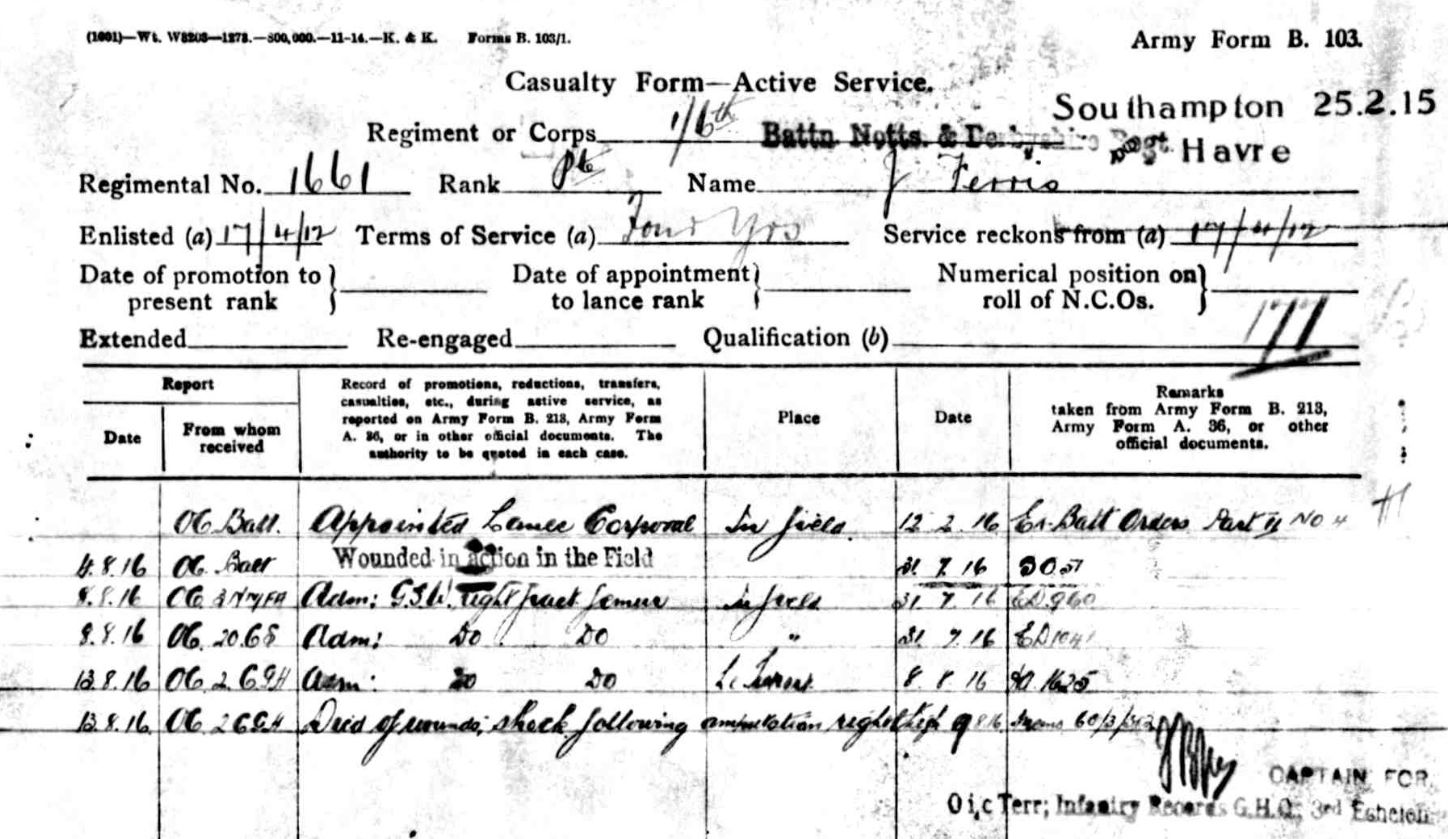 (1601)—Wt. W8208—1278.—500,000.—11-14.—K. & K. Forms B. 103/1. Army Form B. 103.
Casualty Form—Active Service.
Southampton 25.2.15
Regiment or Corps 1/6th Battn. Notts. & Derbyshire Regt. Havre
Regimental No. 1661 Rank Pte Name J Ferris
Enlisted (a) 17/4/12 Terms of Service (a) Four Yrs Service reckons from (a) 17/4/12
Date of promotion to present rank Date of appointment to lance rank Numerical position on roll of N.C.Os.
177
Extended Re-engaged Qualification (b)
Report
Date From whom received
Record of promotions, reductions, transfers, casualties, etc., during active service, as reported on Army Form B. 213, Army Form A. 36, or in other official documents. The authority to be quoted in each case.
Place
Date
Remarks taken from Army Form B. 213, Army Form A. 36, or other official documents.
OC Batt. Appointed Lance Corporal In field. 12 2 16 Batt Orders Part II No 4
4.8.16 OC Batt Wounded in action in the Field 31 7 16
8.8.16 OC Adm: G.S.W. right fract femur In field 31 7 16 ED960
8.8.16 OC 20 CS Adm: Do Do " 31 7 16 ED1041
13.8.16 OC 2 CGH Adm: Do Do Le Treport 8 8 16 1625
13.8.16 OC 2 CGH Died of wounds; shock following amputation right thigh 9 8 16
CAPTAIN FOR
O i/c Terr; Infantry Records G.H.Q. 3rd Echelon